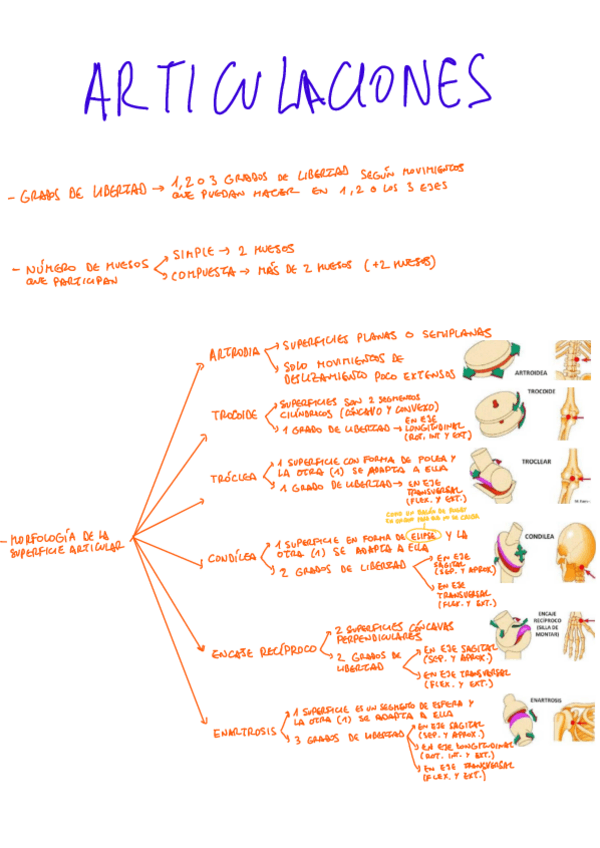 ARTICULACIONES
- GRADOS DE LIBERTAD → 1, 2 O 3 GRADOS DE LIBERTAD SEGÚN MOVIMIENTOS
QUE PUEDAN HACER EN 1, 2 O LOS 3 EJES
- NÚMERO DE HUESOS
QUE PARTICIPAN
SIMPLE → 2 HUESOS
COMPUESTA → MÁS DE 2 HUESOS (+2 HUESOS)
- MORFOLOGÍA DE LA
SUPERFICIE ARTICULAR
ARTRODIA
SUPERFICIES PLANAS O SEMIPLANAS
SOLO MOVIMIENTOS DE
DESLIZAMIENTO POCO EXTENSOS
ARTROIDEA
TROCOIDE
SUPERFICIES SON 2 SEGMENTOS
CILÍNDRICOS (CÓNCAVO Y CONVEXO)
1 GRADO DE LIBERTAD → EN EJE
LONGITUDINAL
(ROT. INT Y EXT)
TROCOIDE
TRÓCLEA
1 SUPERFICIE CON FORMA DE POLEA Y
LA OTRA (1) SE ADAPTA A ELLA
1 GRADO DE LIBERTAD → EN EJE
TRANSVERSAL
(FLEX. Y EXT.)
TROCLEAR
COMO UN BALÓN DE RUGBY
CONDÍLEA
1 SUPERFICIE EN FORMA DE ELIPSE Y LA
OTRA (1) SE ADAPTA A ELLA
2 GRADOS DE LIBERTAD
EN EJE
SAGITAL
(SEP. Y APROX.)
EN EJE
TRANSVERSAL
(FLEX. Y EXT.)
CONDILEA
ENCAJE RECÍPROCO
2 SUPERFICIES CÓNCAVAS
PERPENDICULARES
2 GRADOS DE
LIBERTAD
EN EJE SAGITAL
(SEP. Y APROX.)
EN EJE TRANSVERSAL
(FLEX. Y EXT.)
ENCAJE
RECÍPROCO
(SILLA DE
MONTAR)
ENARTROSIS
1 SUPERFICIE ES UN SEGMENTO DE ESFERA Y
LA OTRA (1) SE ADAPTA A ELLA
3 GRADOS DE LIBERTAD
EN EJE SAGITAL
(SEP. Y APROX.)
EN EJE LONGITUDINAL
(ROT. INT. Y EXT.)
EN EJE TRANSVERSAL
(FLEX. Y EXT.)
ENARTROSIS